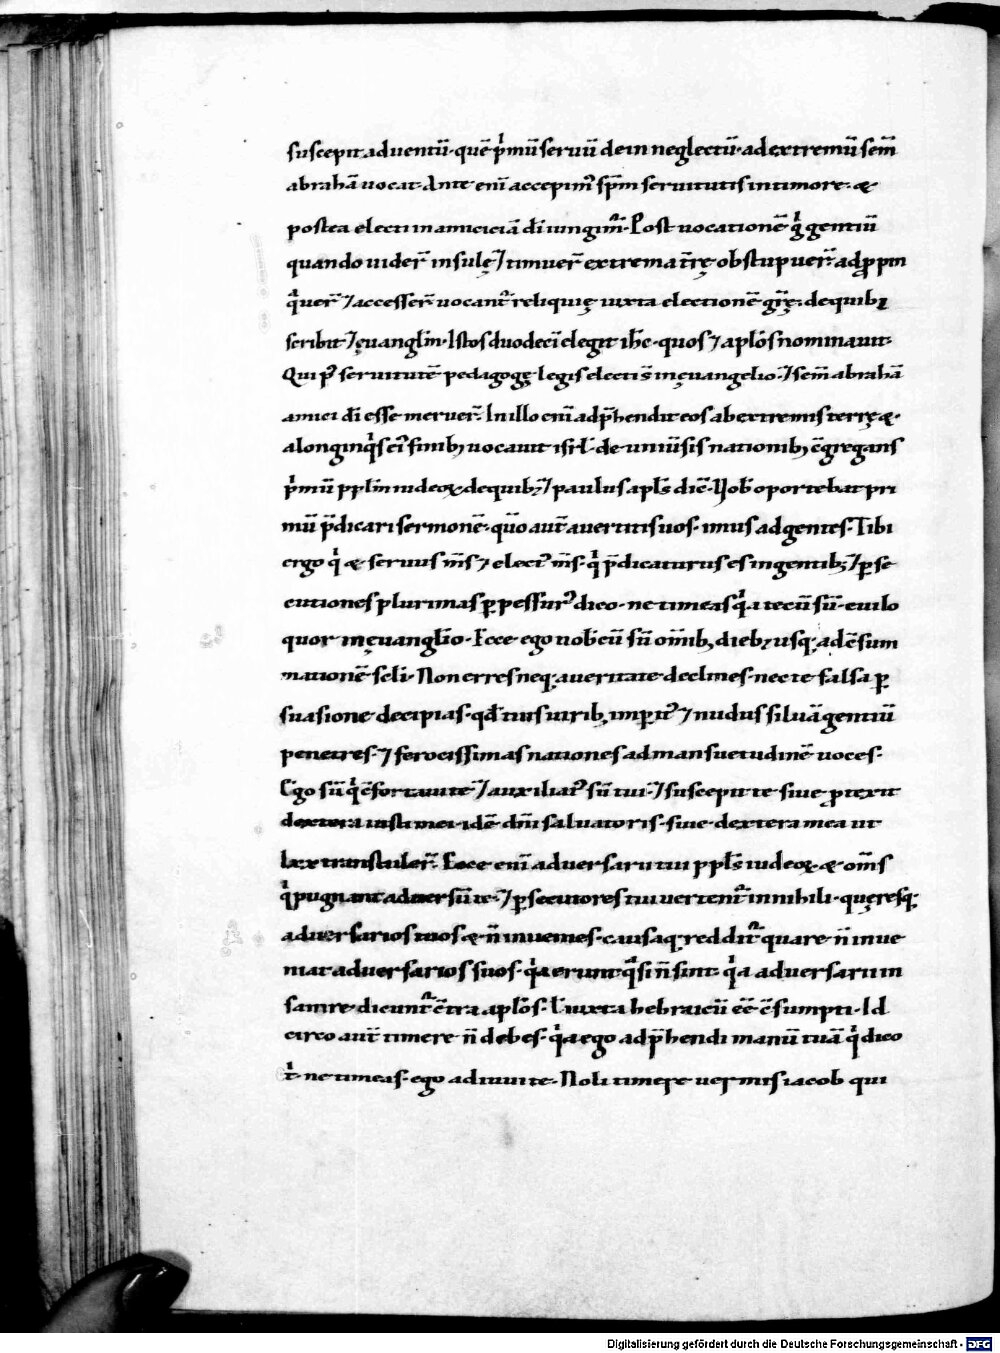 suscepit adventū· quē p̄mū servū dein neglectū· ad extremū sem̄
abrahā vocat· Ante enī accepim᷒ sp̄m servitutis in timore· &
postea electi in amiciciā dī iungim᷒r̄· Post vocationē g̊ gentiū
quando vider̄ insulę ⁊ timuer̄ extrema t̄rę· obstupuer̄· adpropin
q̊uer̄ ⁊ accesser̄ vocant᷒r reliquię iuxta electionē gr̄ę· de quib;
scribit᷒r ī ęuangl̄io· Istos duodecī elegit ih̄c· quos ⁊ apl̄os nominavit·
Qui p᷒ servitutē pedagogę legis electi s̄ in ęuangelio· ⁊ sem̄ abrahā
amici dī esse meruer̄· In illo enī adp̄hendit eos ab extremis terrę &·
a longinq̊s ei᷒ finib; vocavit isrl̄· de univ̄sis nationib; c̄gregans
p̊mū ppl̄m iudeoꝝ· de quib; ⁊ paulus apl̄s dic̄· Nob̄ oportebat pri
mū p̄dicari sermonē· qūo aut̄ avertitis vos· imus ad gentes· Tibi
ergo q̊ & servus m̄s ⁊ elect᷒ m̄s· q̊ p̄dicaturus es in gentib; ⁊ ꝑse
cutiones plurimas ꝑpessur᷒ dico· ne timeas q̊a tecū sū· Cui lo
quor in ęuangl̄io· Ecce ego nob̄cū sū om̄ib; dieb; usq; ad c̄sum
mationē scl̄i· Non erres neq; a veritate declines· nec te falsa ꝑ
suasione decipias· qđ tuis virib; impit᷒ ⁊ nudus silvā gentiū
penetres· ⁊ ferocissimas nationes ad mansuetudinē voces·
Ego sū q̊ c̄fortavi te ⁊ auxiliat᷒ sū tui ⁊ suscepit te sive protexit
dextera iusti mei· idē· dn̄i salvatoris· sive· dextera mea ut
lxx transtuler̄· Ecce enī adversarii tui ppl̄s iudeoꝝ· & om̄s
q̊ pugnant adversū te ⁊ ꝑsecutores tui vertent᷒r in nihili· quęresq;
adversarios tuos & n̄ invenies· causaq; reddit᷒r quare n̄ inve
niat adversarios suos· q̊a erunt q̊si n̄ sint· q̊a adversarii in
sanire dicunt᷒r c̄tra apl̄os· l̄ iuxta hebraicū eē c̄sumpti· Id
circo aut̄ timere n̄ debes· q̊a ego adp̄hendi manū tuā q̊ dico
t̊· ne timeas· ego adiuvi te· Noli timere vermis iacob qui
Digitalisierung gefördert durch die Deutsche Forschungsgemeinschaft - DFG